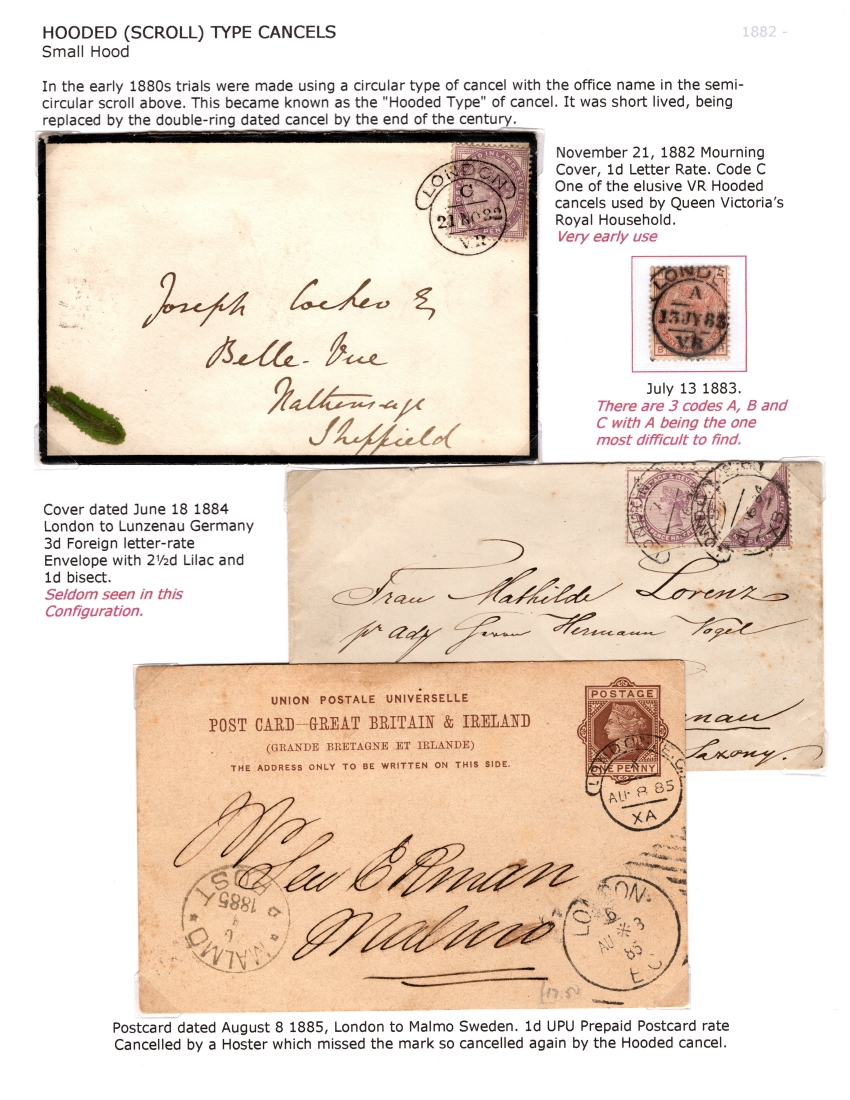 HOODED (SCROLL) TYPE CANCELS
1882 -
Small Hood
In the early 1880s trials were made using a circular type of cancel with the office name in the semi-
circular scroll above. This became known as the "Hooded Type" of cancel. It was short lived, being
replaced by the double-ring dated cancel by the end of the century.
LONDON
C
21 NO 82
V.R
Joseph Cocker E
Belle-Vue
Sheffield
November 21, 1882 Mourning
Cover, 1d Letter Rate. Code C
One of the elusive VR Hooded
cancels used by Queen Victoria’s
Royal Household.
Very early use
A
13 JY 83
VR
July 13 1883.
There are 3 codes A, B and
C with A being the one
most difficult to find.
Cover dated June 18 1884
London to Lunzenau Germany
3d Foreign letter-rate
Envelope with 2½d Lilac and
1d bisect.
Seldom seen in this
Configuration.
Frau Mathilde Lorenz
Hermann Vogel
nau
Saxony.
UNION POSTALE UNIVERSELLE
POST CARD—GREAT BRITAIN & IRELAND
(GRANDE BRETAGNE ET IRLANDE)
THE ADDRESS ONLY TO BE WRITTEN ON THIS SIDE.
POSTAGE
ONE PENNY
LONDON E.C.
AU 8 85
XA
Malmo
MALMÖ
POST
1885
LONDON
6
AU 8
85
E.C
17.50
Postcard dated August 8 1885, London to Malmo Sweden. 1d UPU Prepaid Postcard rate
Cancelled by a Hoster which missed the mark so cancelled again by the Hooded cancel.